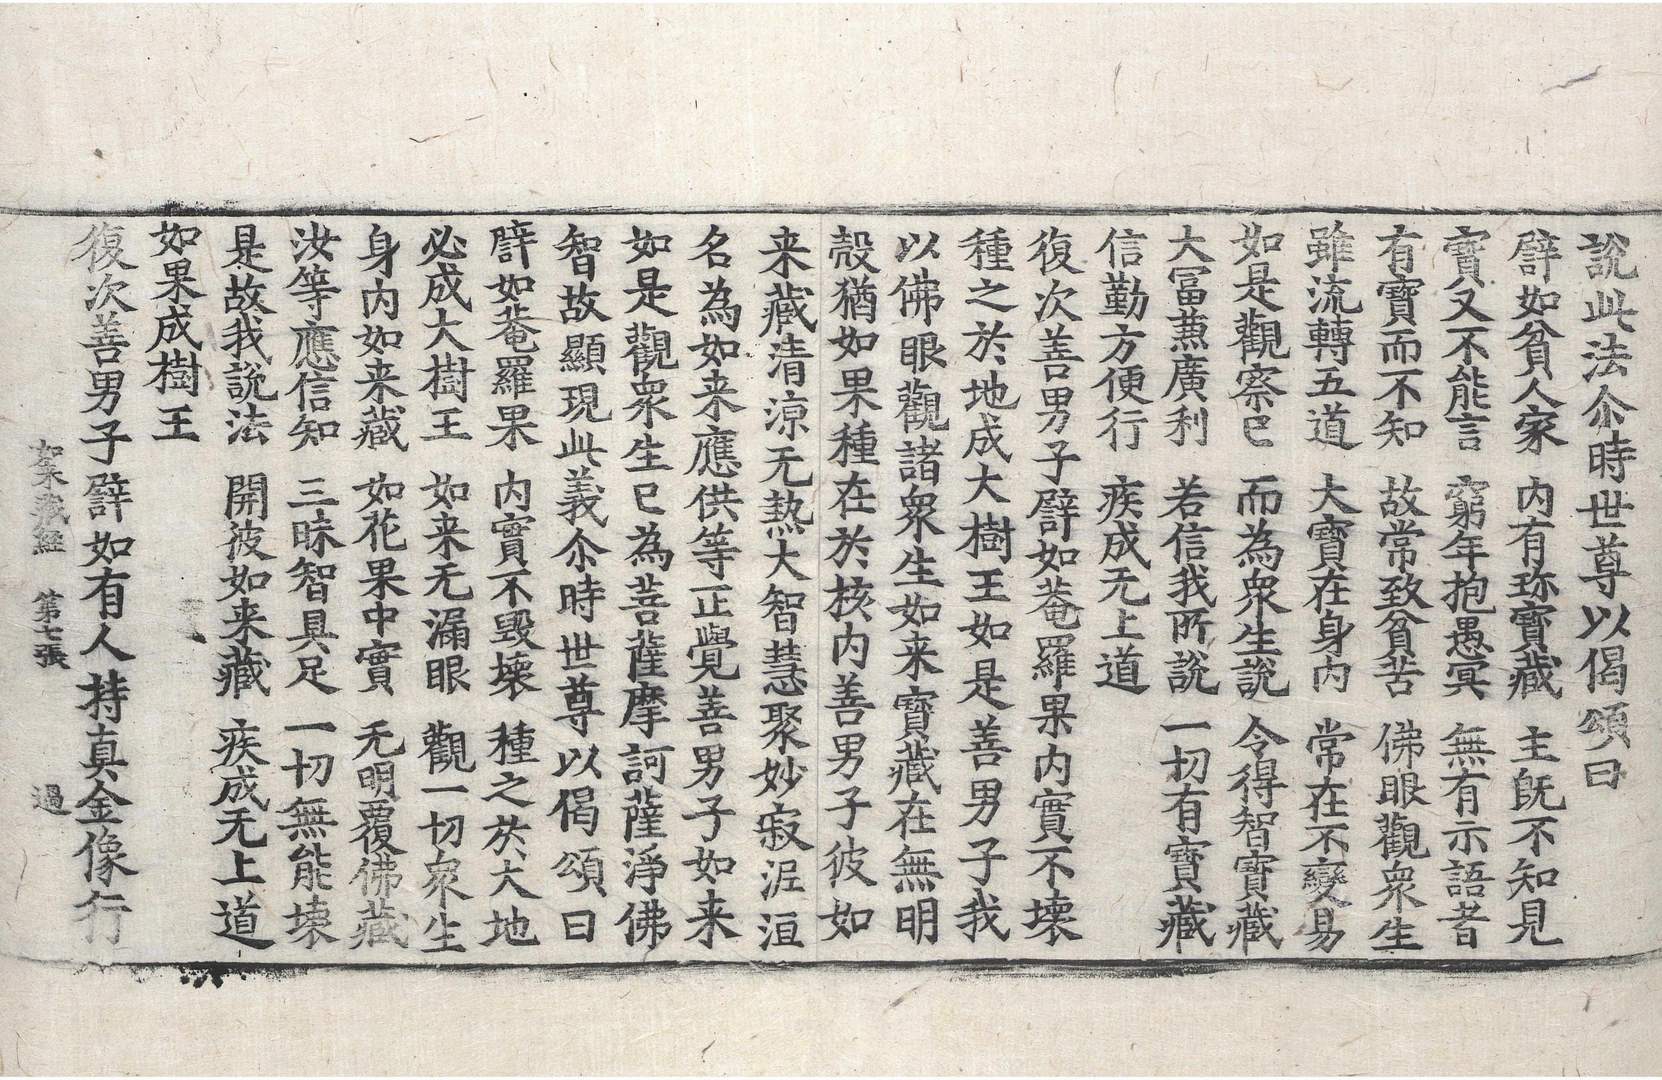 說此法尒時世尊以偈頌曰
譬如貧人家　内有珎寶藏　主旣不知見
寶又不能言　窮年抱愚冥　無有示語者
有寶而不知　故常致貧苦　佛眼觀衆生
雖流轉五道　大寶在身内　常在不變易
如是觀察已　而為衆生說　令得智寶藏
大冨蒹廣利　若信我所說　一切有寶藏
信勤方便行　疾成无上道
復次善男子譬如菴羅果内實不壞
種之於地成大樹王如是善男子我
以佛眼觀諸衆生如来寶藏在無明
殼猶如果種在於核内善男子彼如
来藏清涼无熱大智慧聚妙寂泥洹
名為如来應供等正覺善男子如来
如是觀衆生已為菩薩摩訶薩淨佛
智故顯現此義尒時世尊以偈頌曰
譬如菴羅果　内實不毀壞　種之於大地
必成大樹王　如来无漏眼　觀一切衆生
身内如来藏　如花果中實　无明覆佛藏
汝等應信知　三昧智具足　一切無能壞
是故我說法　開彼如来藏　疾成无上道
如果成樹王
復次善男子譬如有人持真金像行
如来藏経　第七張　過